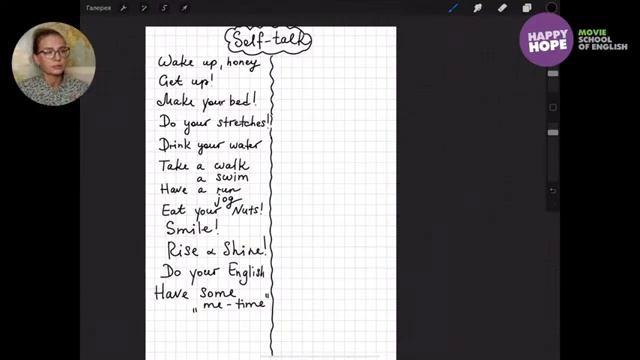 Галерея
HAPPY
HOPE
MOVIE
SCHOOL
OF ENGLISH
Self-talk
Wake up, honey
Get up!
Make your bed!
Do your stretches!
Drink your water
Take a walk
a swim
Have a run
jog
Eat your Nuts!
Smile!
Rise & Shine!
Do your English
Have some
"me-time"